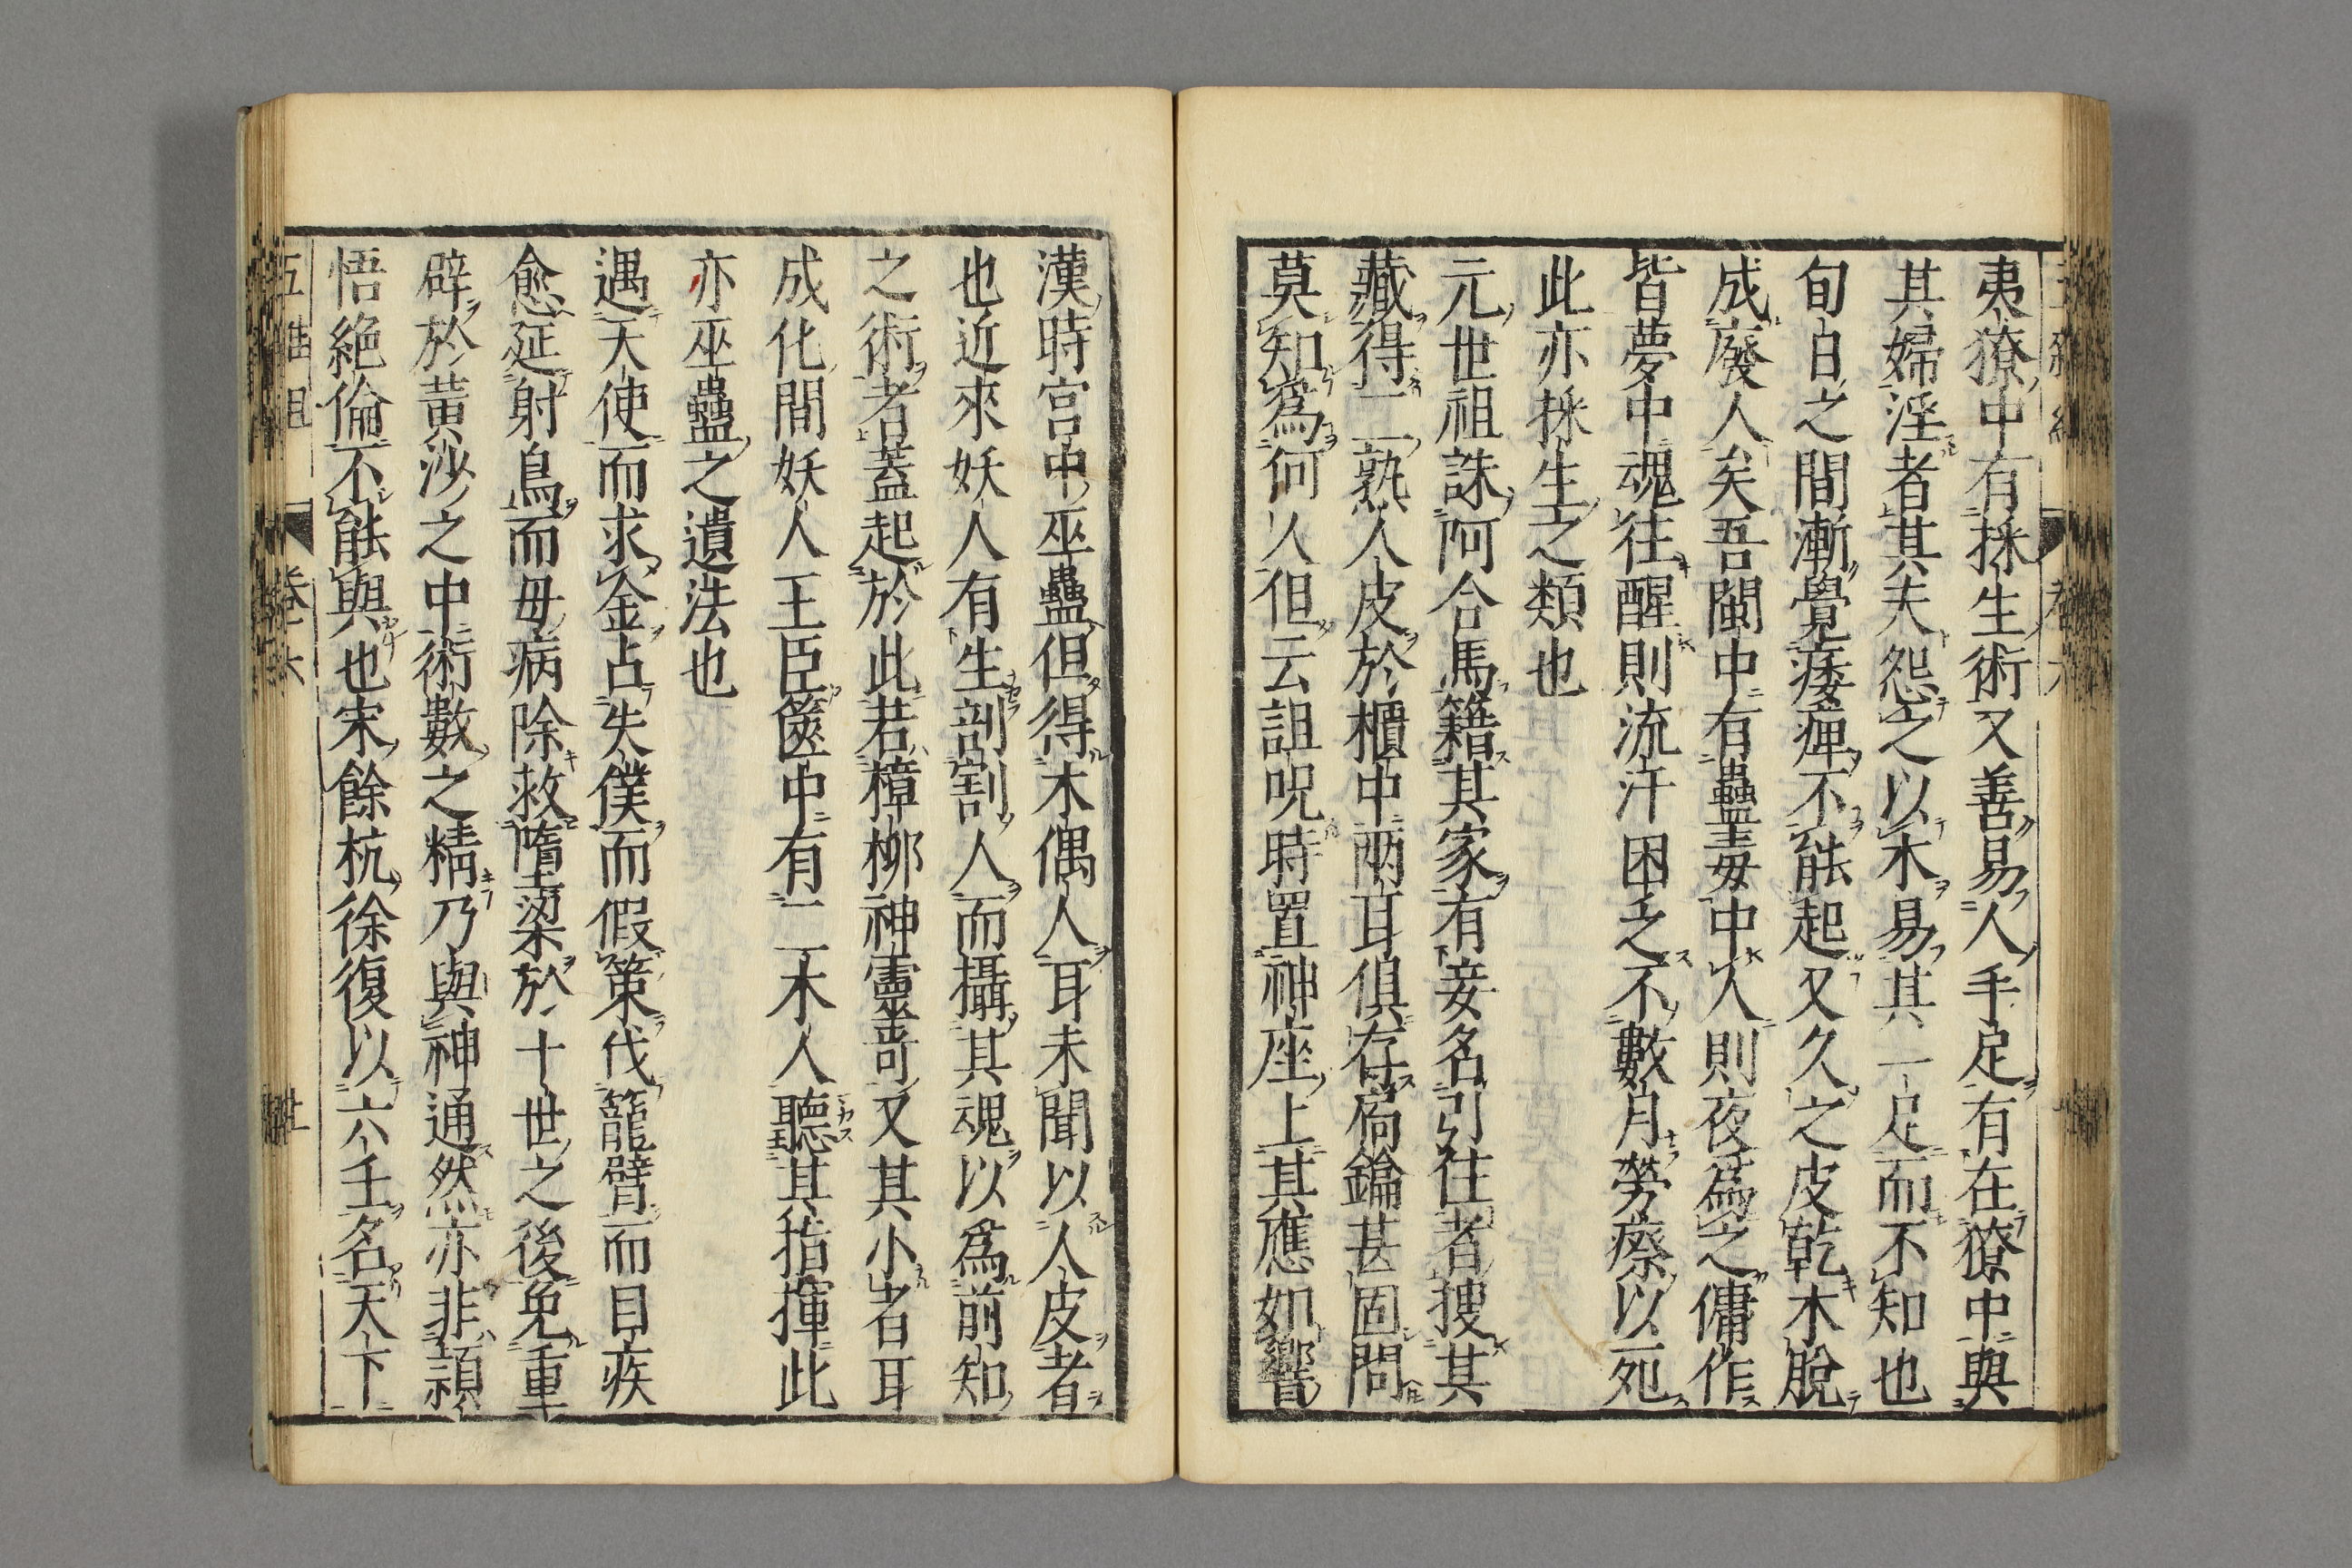 夷獠中有採生術又善易人手足有在獠中與
其婦淫者其夫怨之以木易其一足而不知也
旬日之間漸覺痿痺不能起又久之皮乾木脫
成廢人矣吾閩中有蠱毒中人則夜爲之傭作
皆夢中魂往醒則流汗困乏不數月勞瘵以死
此亦採生之類也
元世祖誅阿合馬籍其家有妾名引住者搜其
藏得二熟人皮於櫃中兩耳俱存扃鑰甚固問
莫知爲何人但云詛呪時置神座上其應如響
漢時宮中巫蠱但得木偶人耳未聞以人皮者
也近來妖人有生剖割人而攝其魂以爲前知
之術者蓋起於此若樟柳神靈哥又其小者耳
成化間妖人王臣篋中有二木人聽其指揮此
亦巫蠱之遺法也
遇天使而求金占失僕而假策代籠臂而目疾
愈延射鳥而毋病除救墮梁於十世之後免重
辟於黃沙之中術數之精乃與神通然亦非頴
悟絶倫不能與也宋餘杭徐復以六壬名天下
五雜組 卷六